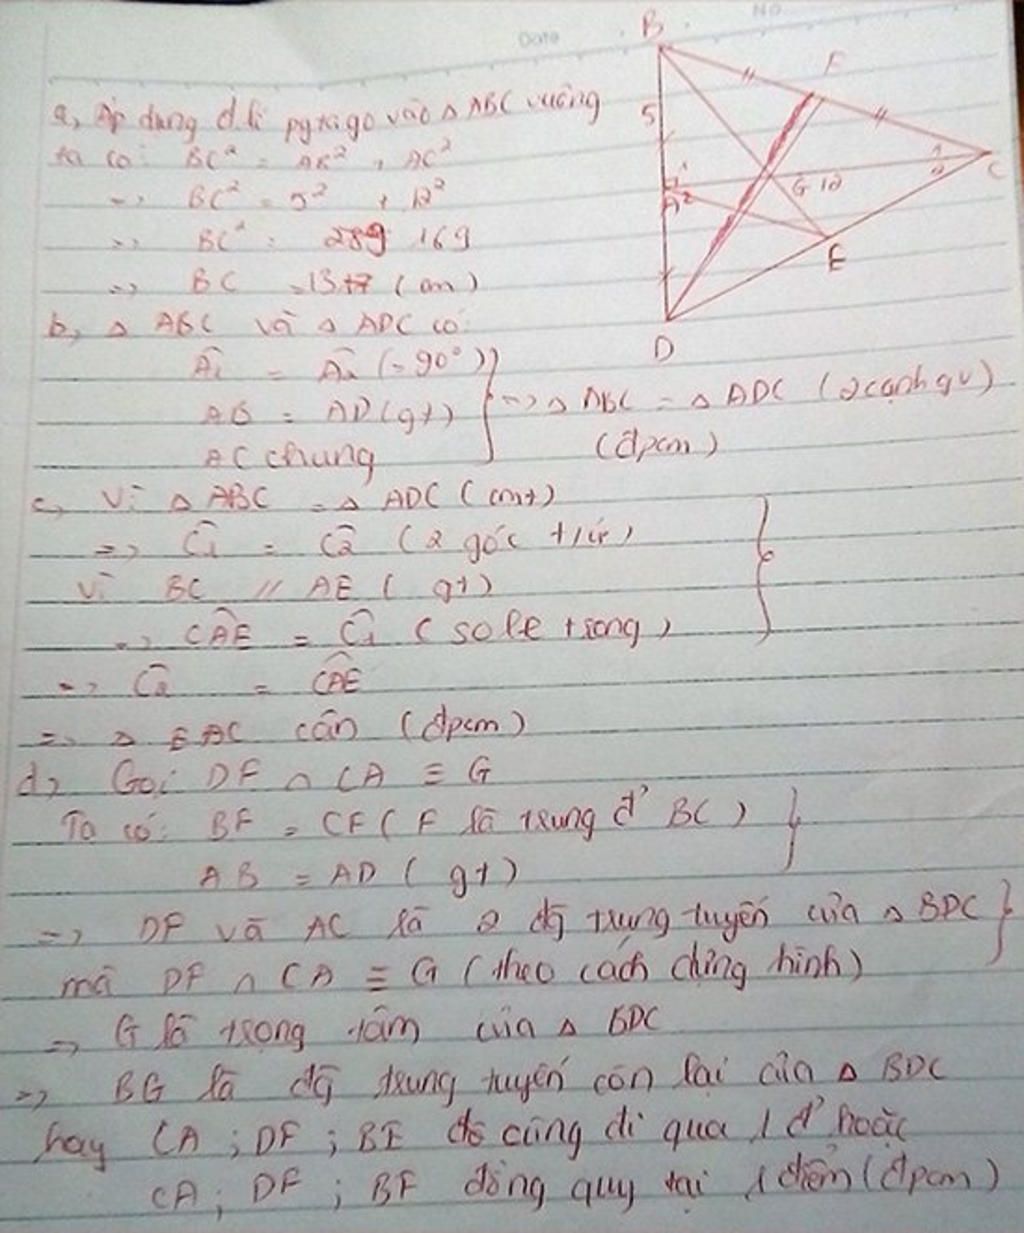 Date No
B
F
5
1
1
2
C
A 2
G 12
E
D
a, Áp dụng đ.lí pytago vào Δ ABC vuông
ta có: BC² = AB² + AC²
=> BC² = 5² + 12²
=> BC² = 169
=> BC = 13 (cm)
b, Δ ABC và Δ ADC có:
Â1 = Â2 (= 90°)
AB = AD (gt)
AC chung
=> Δ ABC = Δ ADC (2 cạnh gv)
(đpcm)
c, Vì Δ ABC = Δ ADC (cmt)
=> Ĉ1 = Ĉ2 (2 góc t/ứ)
Vì BC // AE (gt)
=> CAE = Ĉ1 (so le trong)
=> Ĉ2 = CAE
=> Δ EAC cân (đpcm)
d, Gọi DF ∩ CA ≡ G
Ta có: BF = CF (F là trung đ' BC)
AB = AD (gt)
=> DF và AC là 2 đg trung tuyến của Δ BDC
mà DF ∩ CA ≡ G (theo cách dựng hình)
=> G là trọng tâm của Δ BDC
=> BG là đg trung tuyến còn lại của Δ BDC
hay CA ; DF ; BE đi qua 1 đ' hoặc
CA ; DF ; BF đồng quy tại 1 điểm (đpcm)